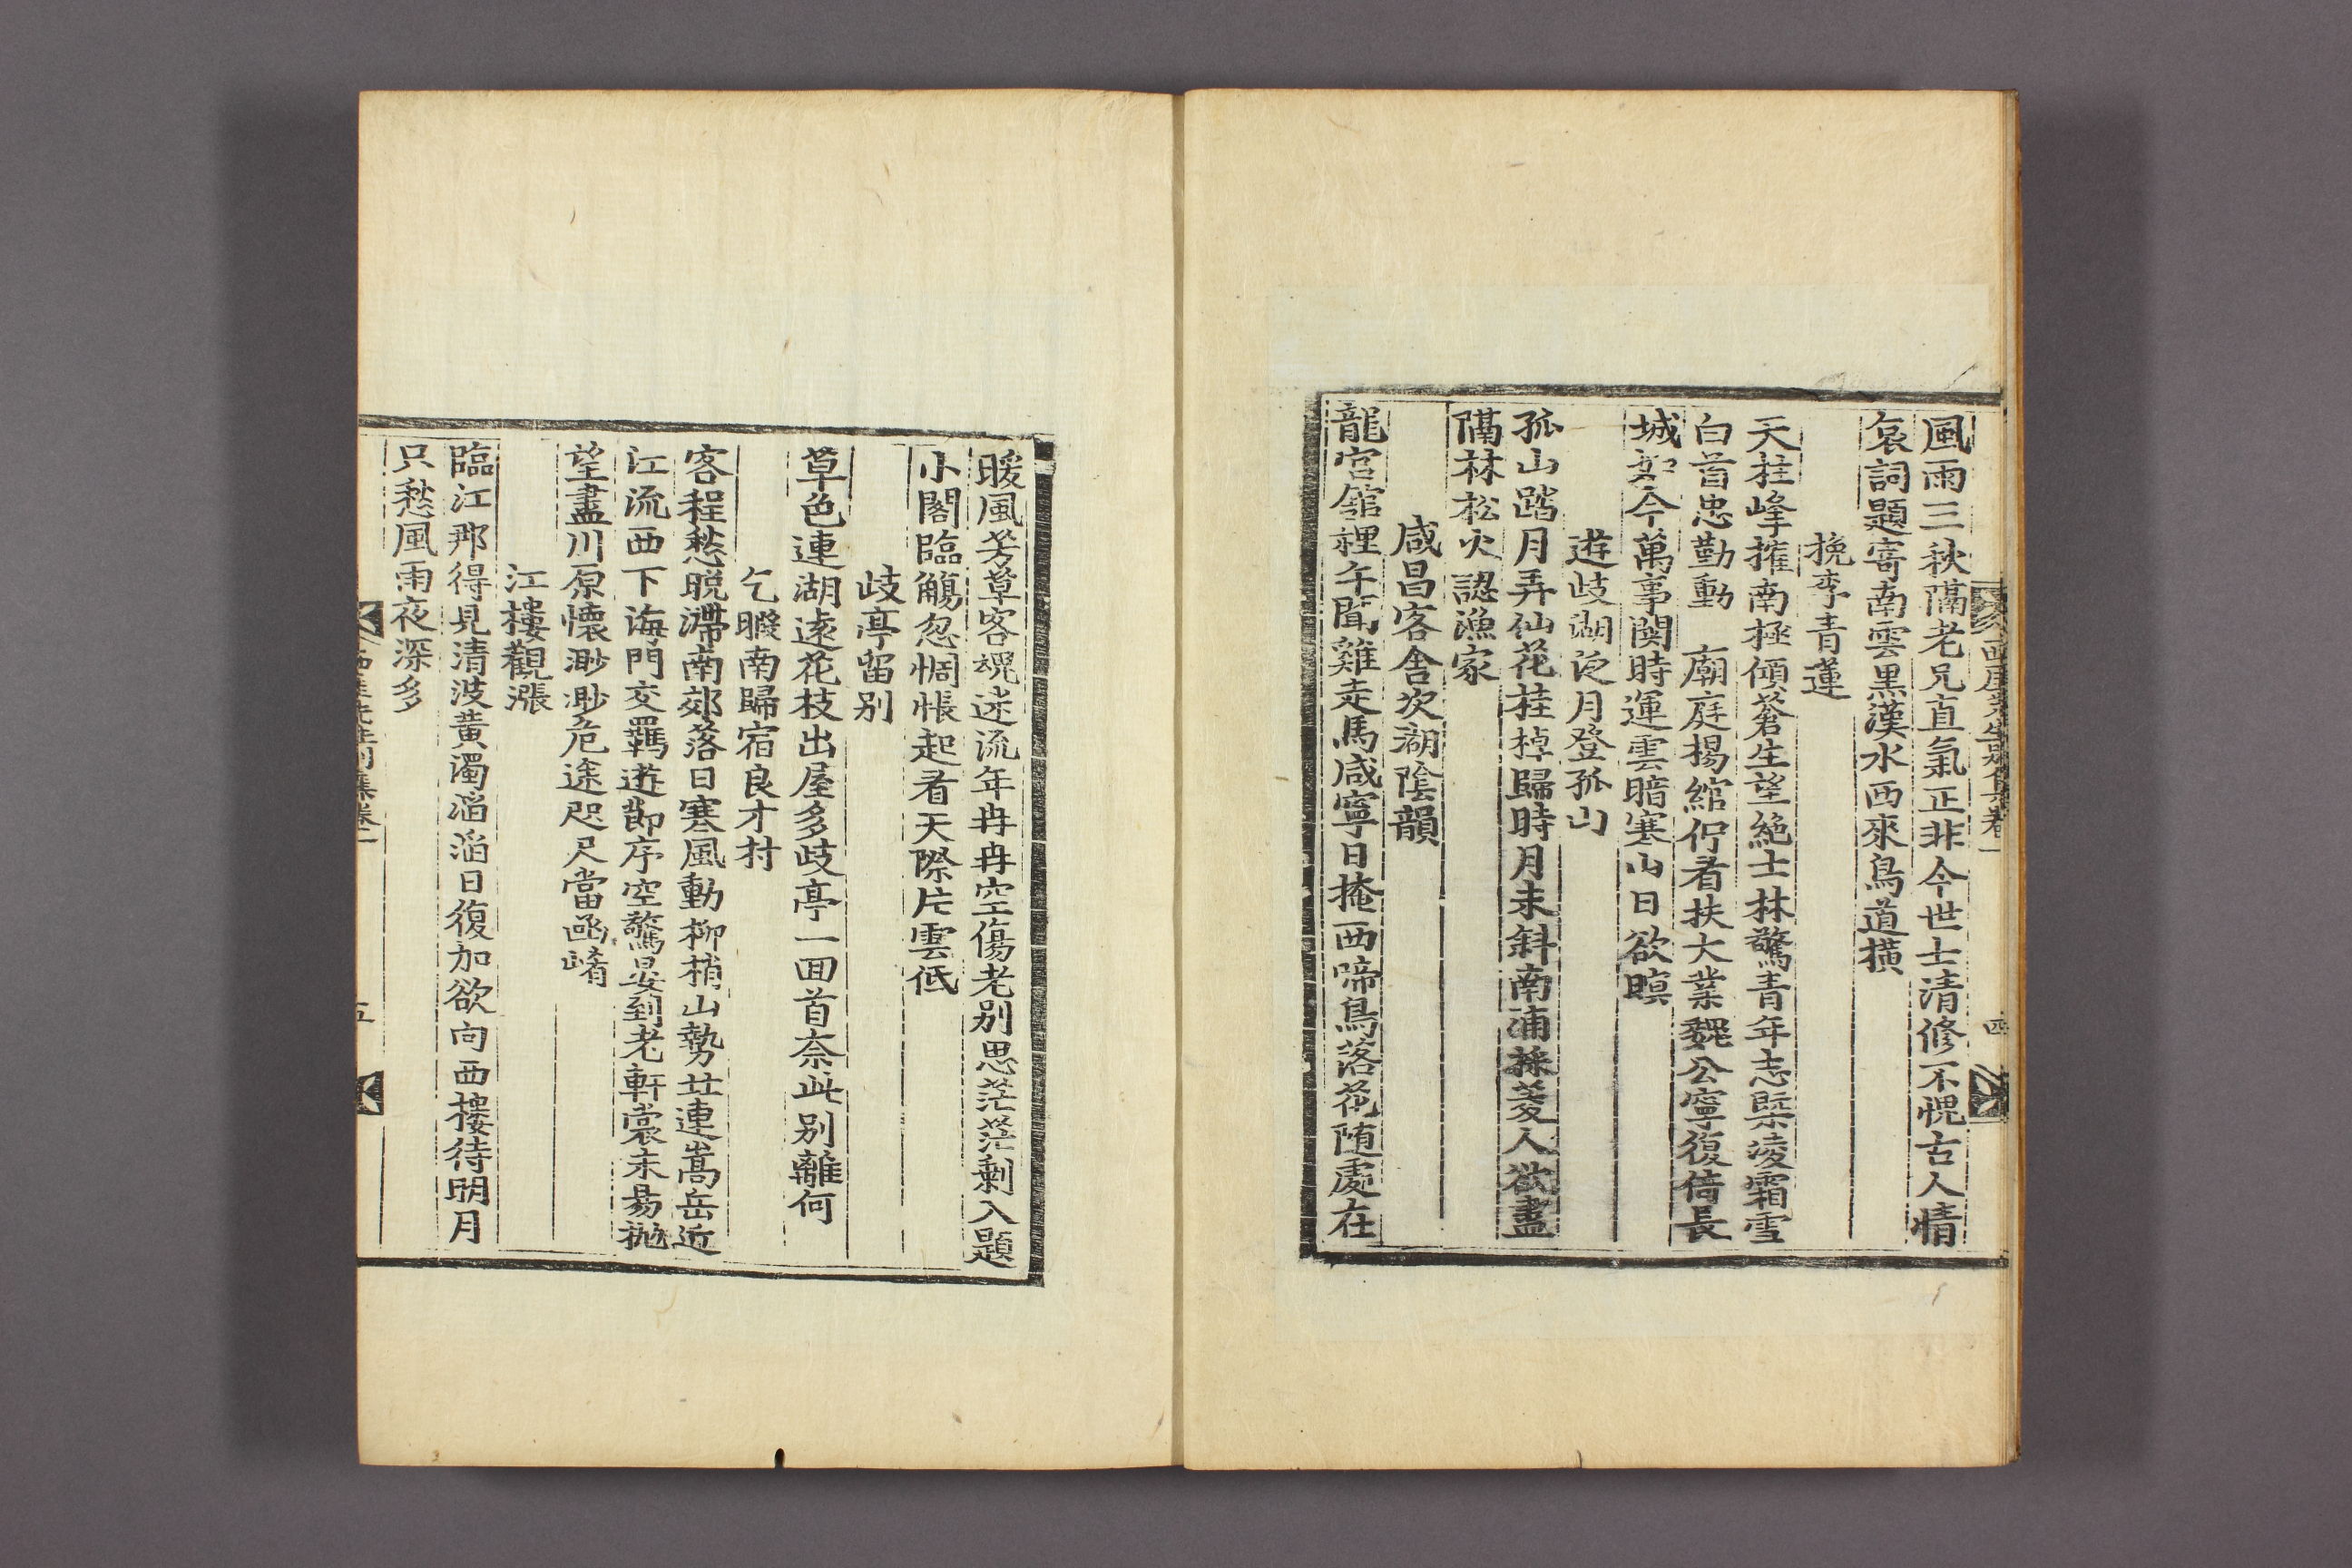 風雨三秋隔老兄直氣正非今世士清修不愧古人情
哀詞題寄南雲黑漢水西來鳥道橫
挽李青蓮
天柱峰摧南極傾蒼生望絶士林驚青年志槩凌霜雪
白首忠勤動 廟庭楊綰佇看扶大業魏公寧復倚長
城如今萬事関時運雲暗寒山日欲暝
遊歧湖泛月登孤山
孤山踏月弄仙花桂棹歸時月未斜南浦採菱人欲盡
隔林松火認漁家
咸昌客舍次湖陰韻
龍宮舘裡午聞雞走馬咸寧日掩西啼鳥落花随處在
暖風芳草客魂迷流年冉冉空傷老别思茫茫剩入題
小閣臨觴忽惆悵起看天際片雲低
歧亭留别
草色連湖遠花枝出屋多歧亭一回首奈此别離何
乞暇南歸宿良才村
客程愁晩滯南郊落日寒風動柳梢山勢廿連嵩岳近
江流西下海門交羈遊節序空驚晏到老軒裳未易抛
望盡川原懷渺渺危途咫尺當函崤
江樓觀漲
臨江那得見清波黄濁滔滔日復加欲向西樓待明月
只愁風雨夜深多
五
四